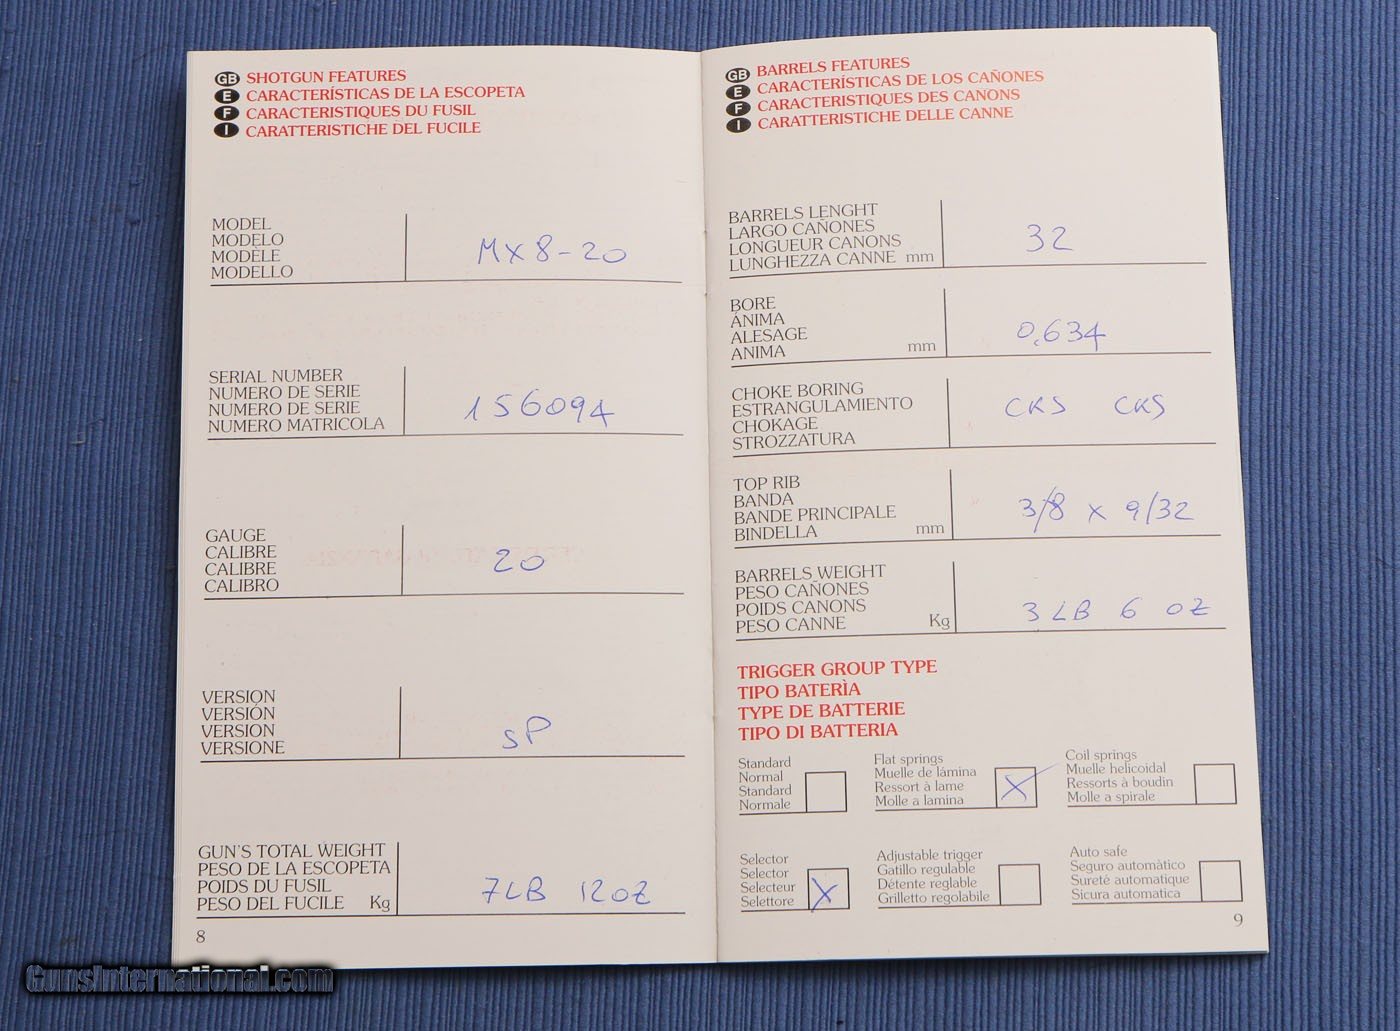 GB SHOTGUN FEATURES
E CARACTERÍSTICAS DE LA ESCOPETA
F CARACTERISTIQUES DU FUSIL
I CARATTERISTICHE DEL FUCILE
MODEL
MODELO
MODÈLE
MODELLO
MX8-20
SERIAL NUMBER
NUMERO DE SERIE
NUMERO DE SERIE
NUMERO MATRICOLA
156094
GAUGE
CALIBRE
CALIBRE
CALIBRO
20
VERSION
VERSIÓN
VERSION
VERSIONE
SP
GUN'S TOTAL WEIGHT
PESO DE LA ESCOPETA
POIDS DU FUSIL
PESO DEL FUCILE Kg
7LB 12OZ
8
GB BARRELS FEATURES
E CARACTERÍSTICAS DE LOS CAÑONES
F CARACTERISTIQUES DES CANONS
I CARATTERISTICHE DELLE CANNE
BARRELS LENGHT
LARGO CAÑONES
LONGUEUR CANONS
LUNGHEZZA CANNE mm
32
BORE
ÁNIMA
ALESAGE
ANIMA mm
0,634
CHOKE BORING
ESTRANGULAMIENTO
CHOKAGE
STROZZATURA
CKS CKS
TOP RIB
BANDA
BANDE PRINCIPALE
BINDELLA mm
3/8 x 9/32
BARRELS WEIGHT
PESO CAÑONES
POIDS CANONS
PESO CANNE Kg
3 LB 6 OZ
TRIGGER GROUP TYPE
TIPO BATERÌA
TYPE DE BATTERIE
TIPO DI BATTERIA
Standard
Normal
Standard
Normale
Flat springs
Muelle de lámina
Ressort à lame
Molle a lamina
X
Coil springs
Muelle helicoidal
Ressorts à boudin
Molle a spirale
Selector
Selector
Selecteur
Selettore
X
Adjustable trigger
Gatillo regulable
Détente reglable
Grilletto regolabile
Auto safe
Seguro automàtico
Sureté automatique
Sicura automatica
9
GunsInternational.com